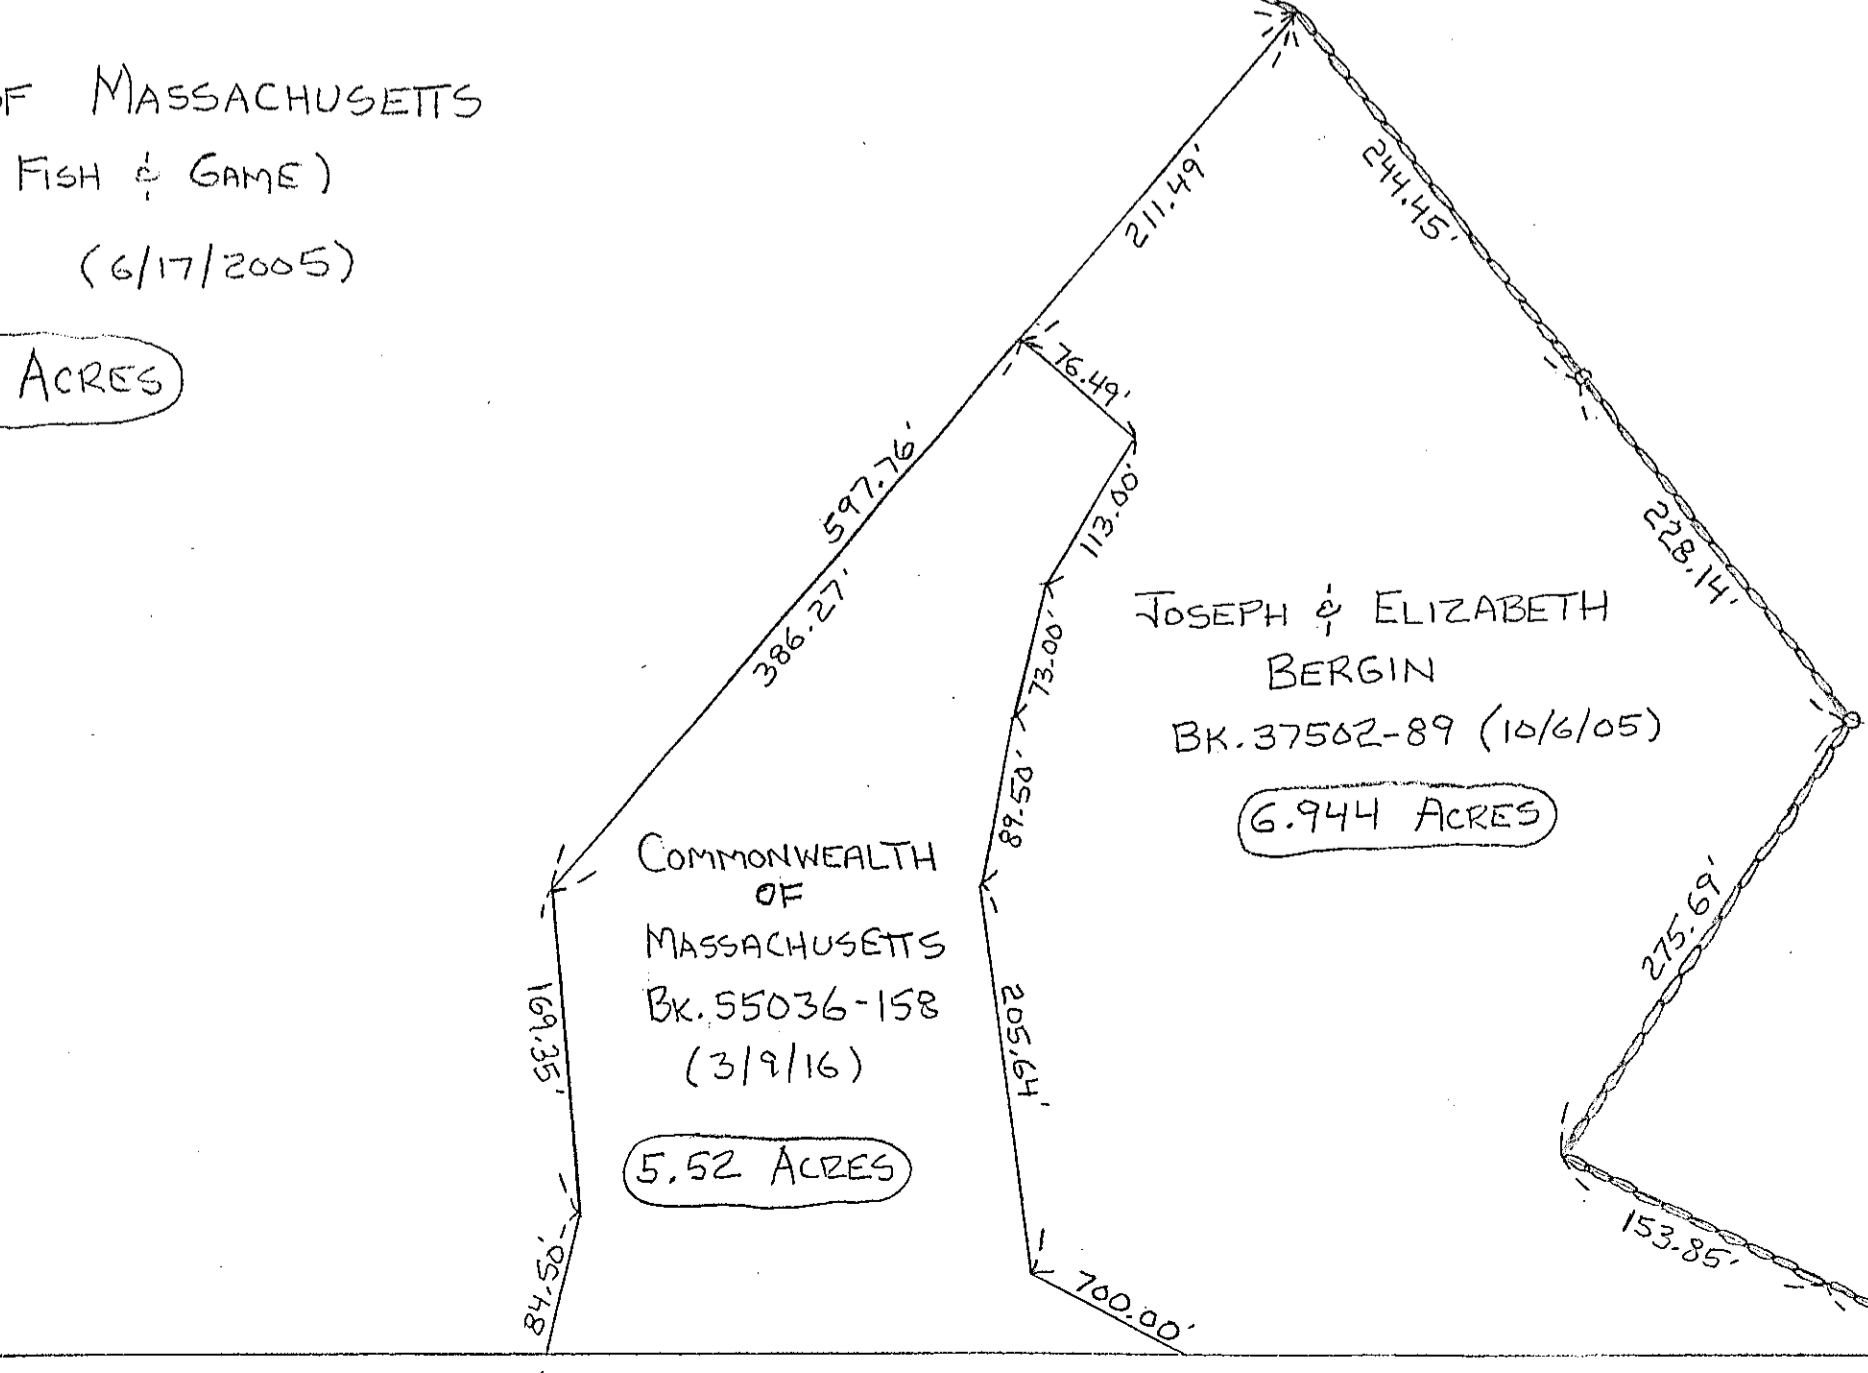 OF MASSACHUSETTS
FISH & GAME)
(6/17/2005)
ACRES
211.49'
244.45'
76.49'
597.76'
113.00'
386.27'
228.14'
73.00'
JOSEPH & ELIZABETH
BERGIN
BK.37502-89 (10/6/05)
6.944 ACRES
89.50'
COMMONWEALTH
OF
MASSACHUSETTS
BK.55036-158
(3/9/16)
5.52 ACRES
275.69'
169.35'
205.64'
153.85'
84.50'
700.00'